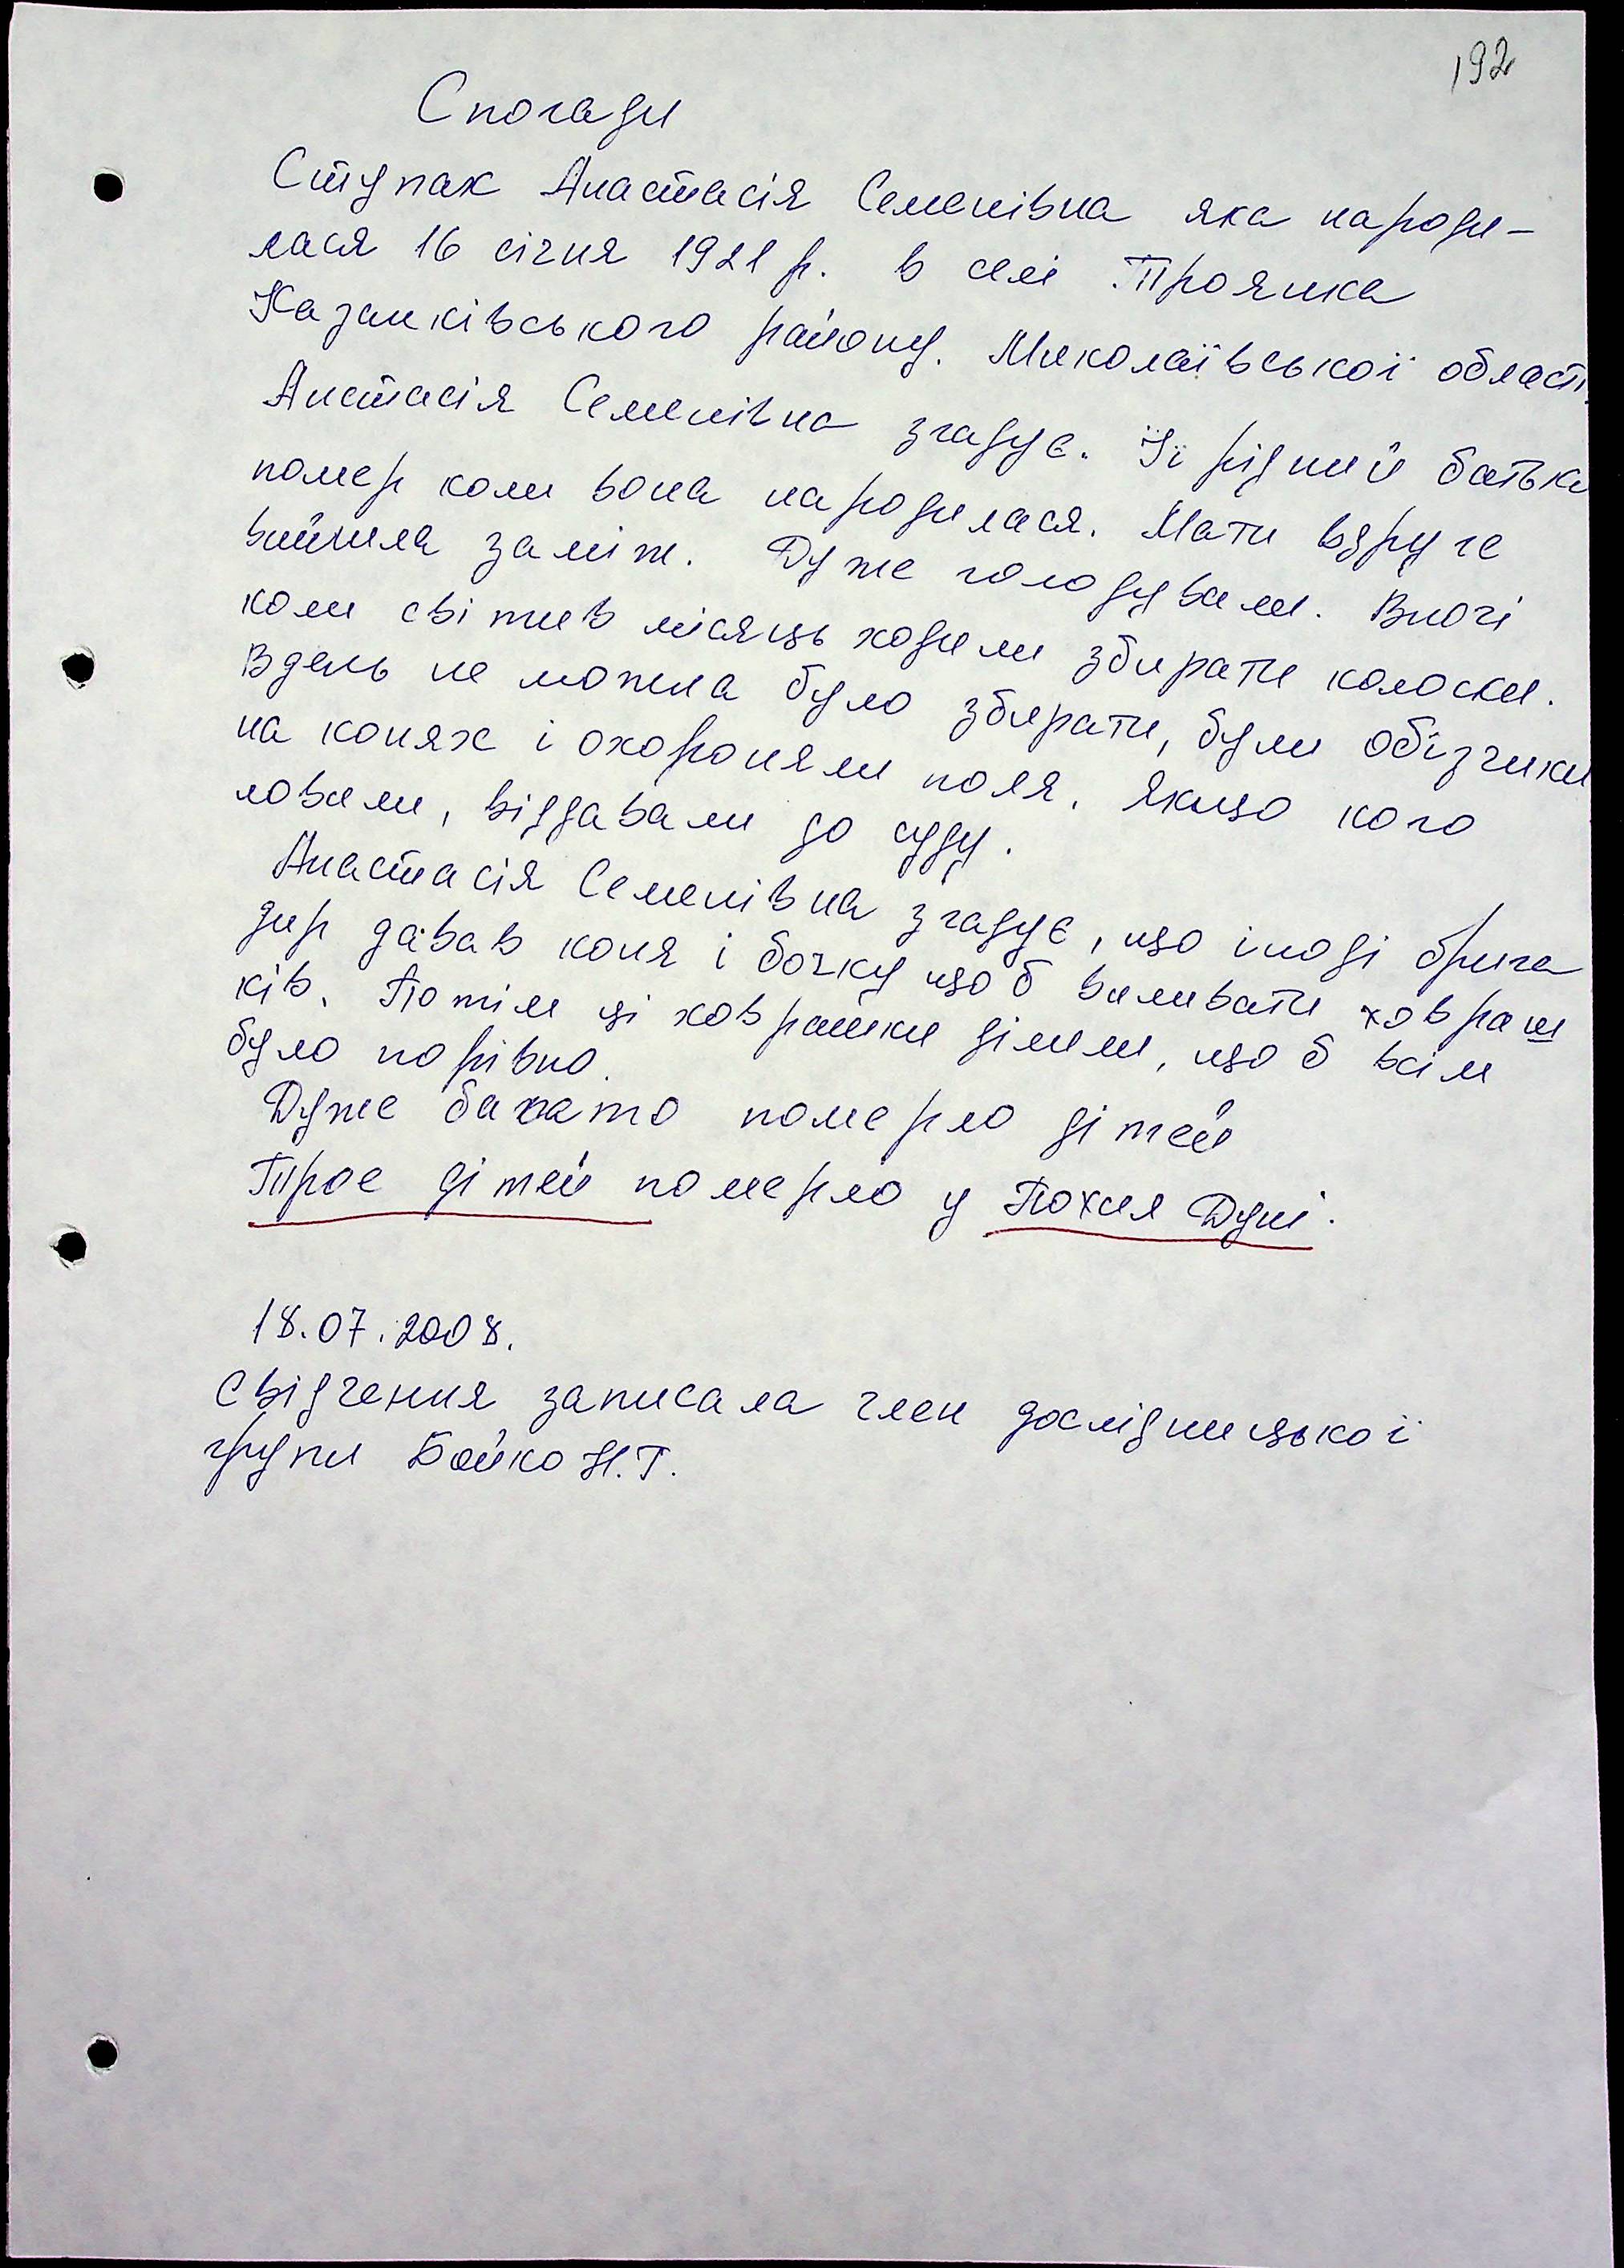 192
Спогади
Ступак Анастасія Семенівна яка народи-
лася 16 січня 1921 р. в селі Троянка
Казанківського району. Миколаївської області.
Анстасія Семенівна згадує. Її рідний батько
помер коли вона народилася. Мати вдруге
вийшла заміж. Дуже голодували. Вночі
коли світив місяць ходили збирати колоски.
Вдень не можна було збирати, були обїзчики
на конях і охороняли поля. Якщо кого
ловили, віддавали до суду.
Анастасія Семенівна згадує, що іноді брига
дир давав коня і бочку щоб виливати ховраш
ків. Потім ці ховрашки ділили, щоб всім
було порівно.
Дуже багато померло дітей
Троє дітей померло у Дуні.
18.07.2008.
Свідчення записала член дослідницької
групи Бойко Н.Г.